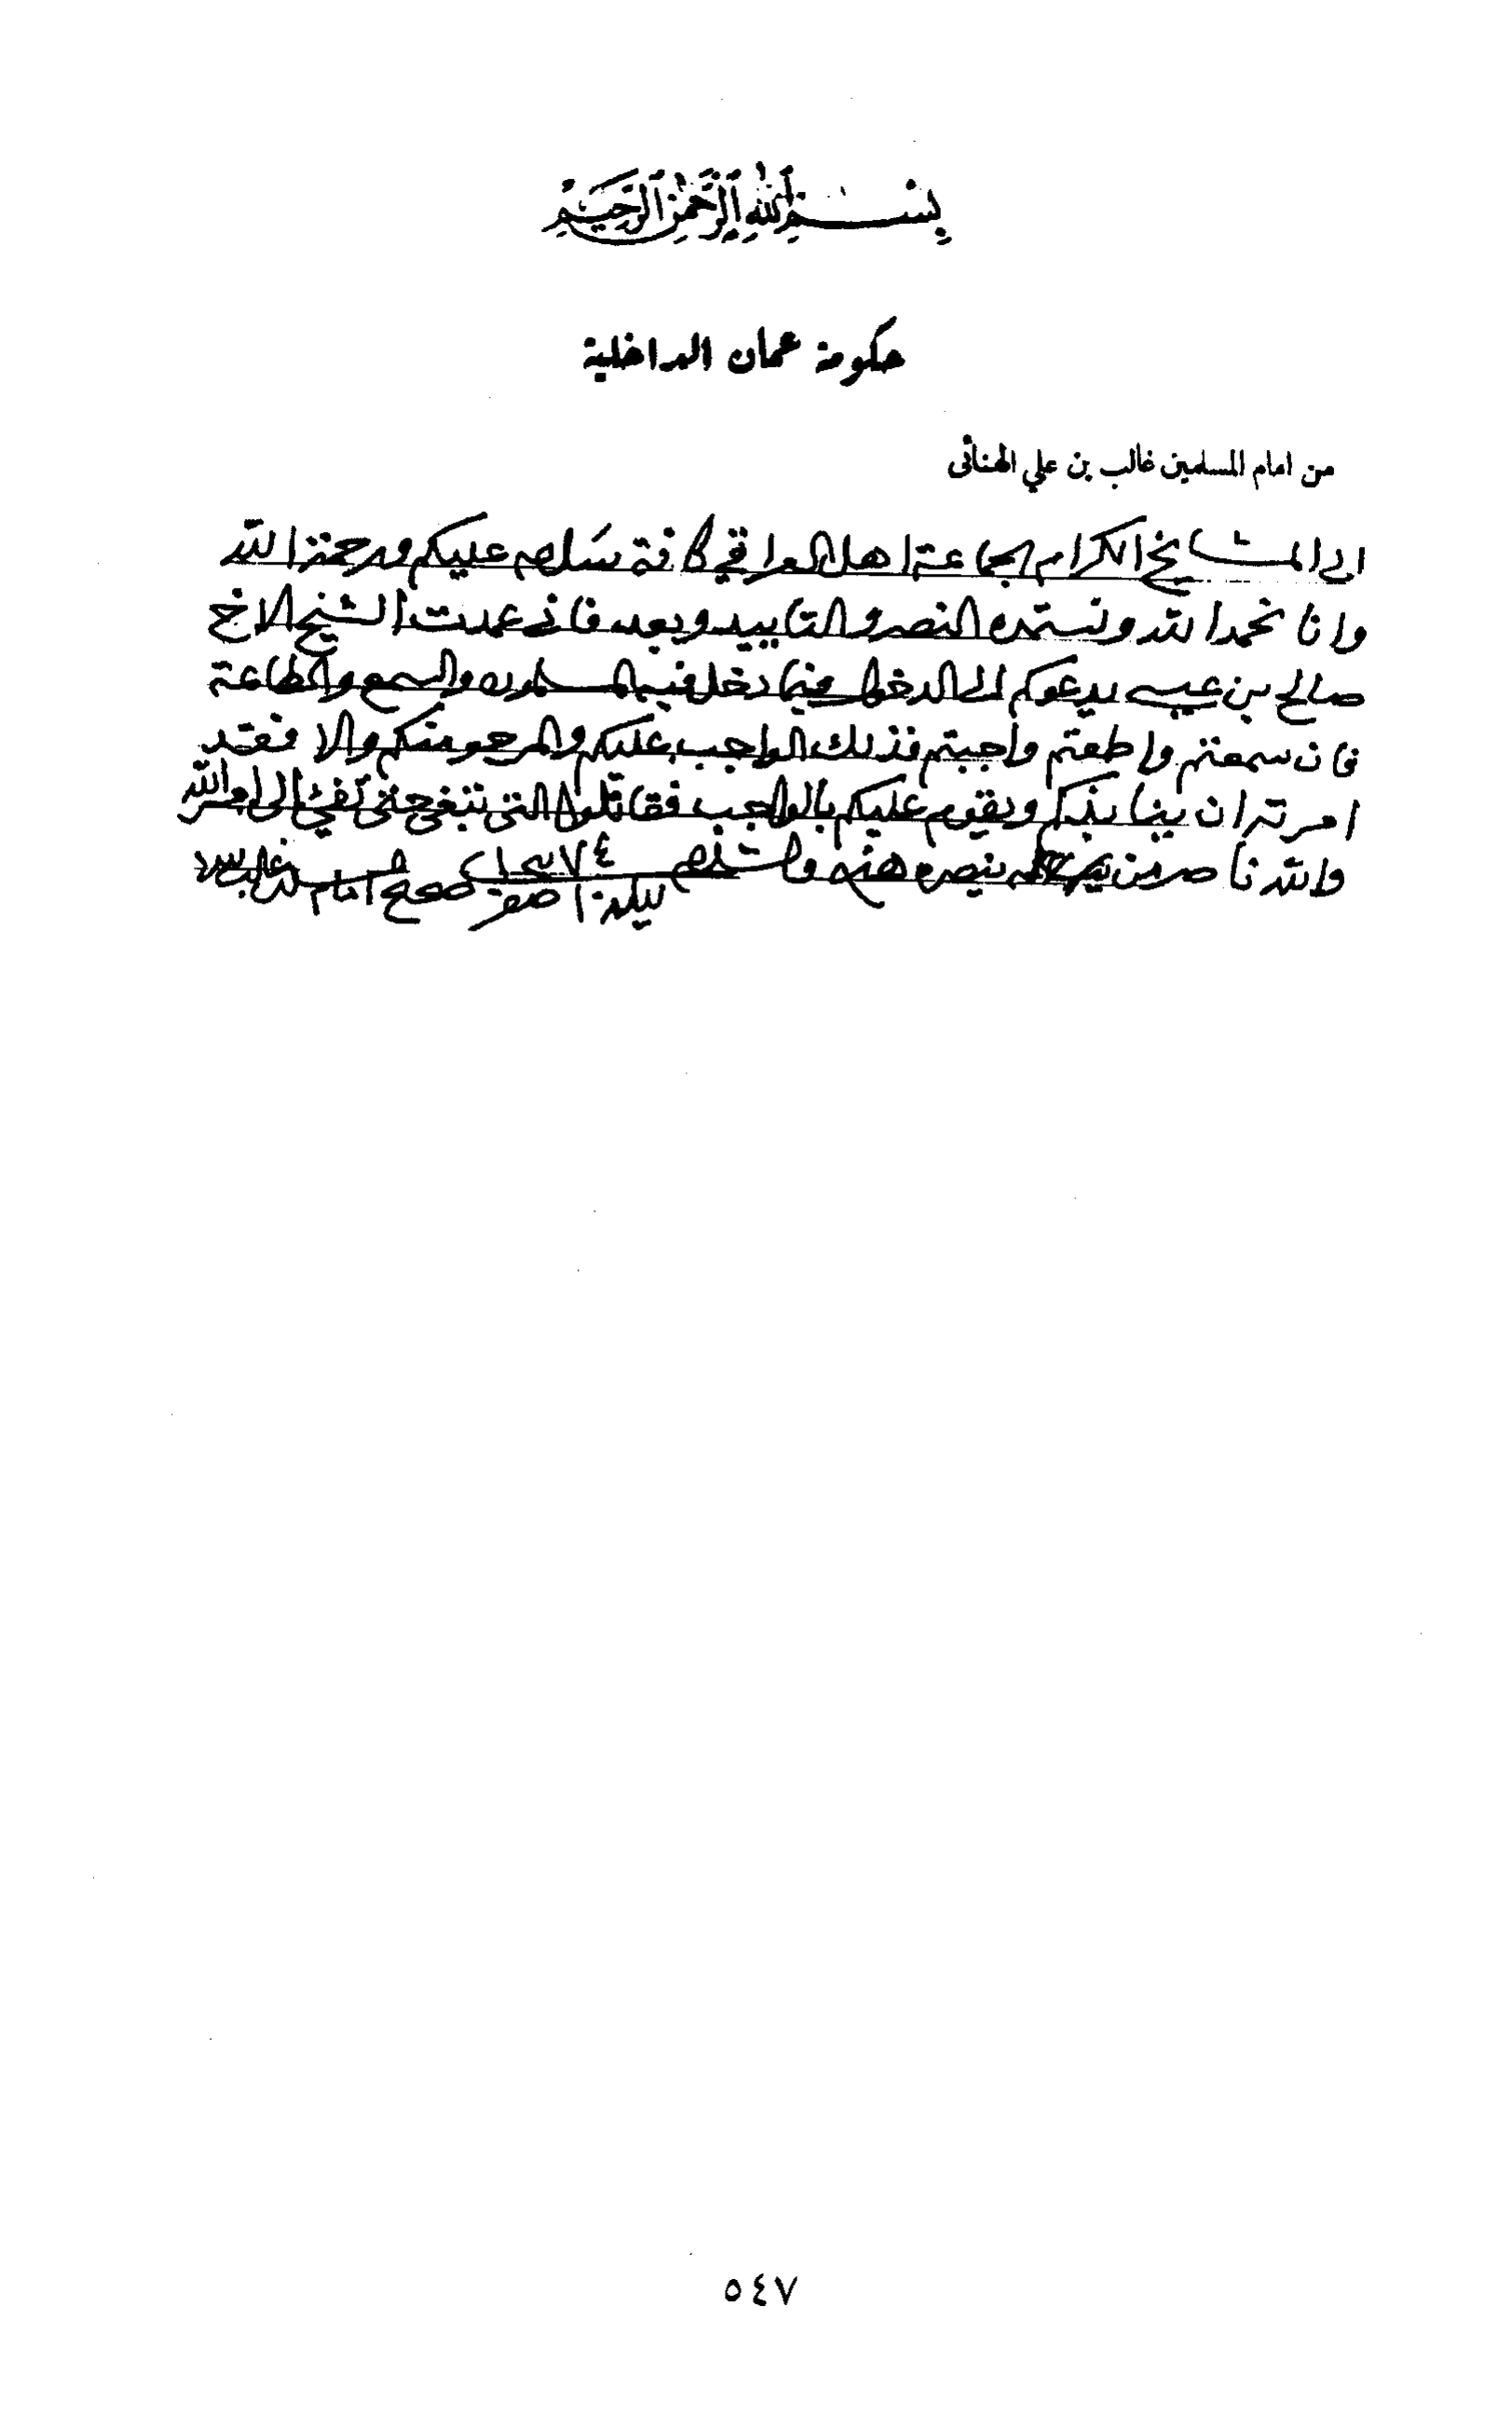 بسم الله الرحمن الرحيم
حكومة عمان الداخلية
من امام المسلمين غالب بن علي الهنائي
الى المشايخ الكرام الجماعة اهل العوافي كافة سلام عليكم ورحمة الله
وانا نحمد الله ونستمده النصر والتاييد وبعد فاني عمدت الشيخ الاخ
صالح بن عيسى يدعوكم الى الدخول فيما دخل فيه المسلمون والسمع والطاعة
فان سمعتم واطعتم واجبتم فذلك الواجب عليكم والمرجو منكم والا فقد
امرته ان ينابذكم ويقوم عليكم بالواجب فقاتلوا التي تبغي حتى تفئ الى امر الله
والله ناصر من ينصره هذه والسلام
ليلة ١٠ صفر ٧٤ صحيح امام